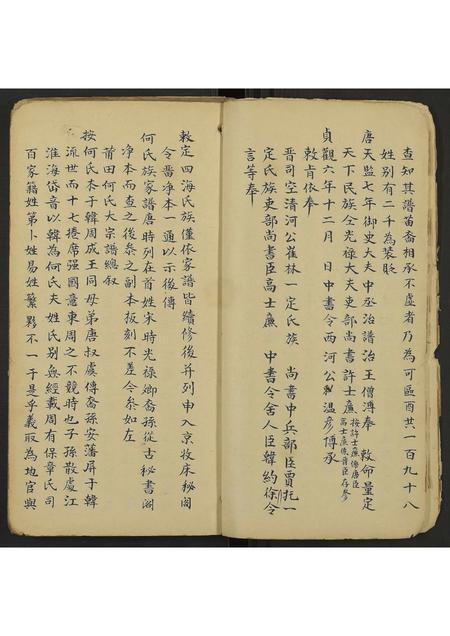 查知其譜苗裔相承不虛者乃為可區酉共一百九十八
姓別有二千為裝賬
唐天監七年御史大夫中丞治譜治王僧溥奉 敕命量定
天下民族仝光祿大夫吏部尚書許士廉按許士廉係唐臣高士廉係晉臣存參
貞觀六年十二月 日中書令西河公 溫彥博承
敕肯依奉
晉司空清河公崔林一定氏族 尚書中兵部臣賈托一
定氏族吏部尚書臣高士廉 中書令舍人臣韓約徐令
言等奉
敕定四海氏族僅依家譜皆續修後并列申入京收床秘閣
令番淨本一通以示後傳
何氏族家譜唐時列在首姓宋時光祿卿裔孫從古秘書閣
淨本而查之後叅之副本板刻不差令叅如左
莆田何氏大宗譜總叙
按何氏本于韓周成王同母弟唐叔虞傳裔孫安藩屏于韓
流世而十七捲席强國意東周之不競時也子孫散處江
淮海岱音以韓為何氏夫姓氏別無經載周有保章氏司
百家籍姓第卜姓易姓繁夥不一于是乎義取為地官與